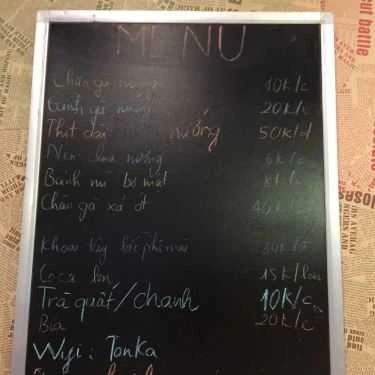 MENU
Chân gà nướng 10k/c
Cánh gà nướng 20k/c
Thịt dải nướng 50k/đ
Nem chua nướng 6k/c
Bánh mì bơ mật 8k/c
Chân gà xả ớt
Khoai tây lốc phô mai 30k/đ
Coca lon 15k/lon
Trà quất/chanh 10k/c
Bia 20k/c
Wifi: Tonka